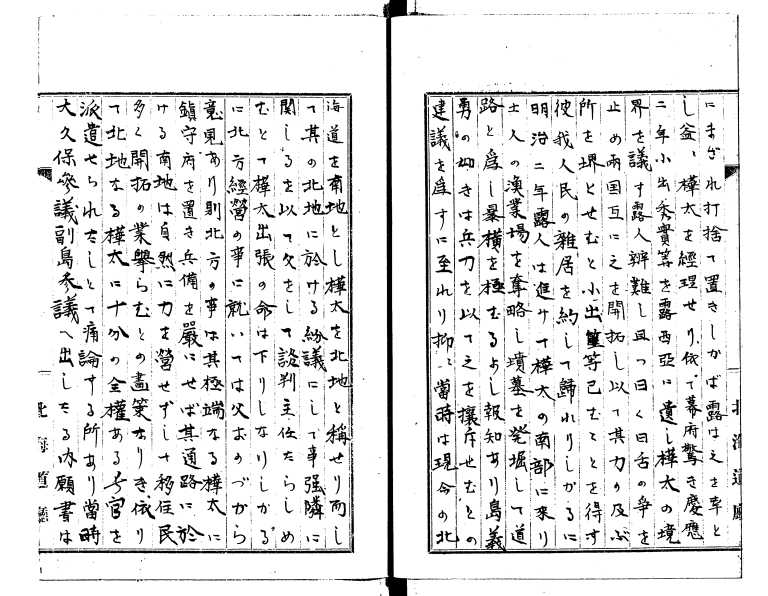 にまぎれ打捨て置きしかば露は之を幸と
し益〻樺太を経理せり依て幕府驚き慶應
二年小出秀實等を露西亞に遣し樺太の境
界を議す露人辨難し且つ曰く曰舌の爭を
止め両国互に之を開拓し以て其力の及ぶ
所を堺とせむと小出等已むことを得ず
彼我人民の雜居を約して歸れりしかるに
明治二年露人は進みて樺太の南部に来り
土人の漁業場を奪略し墳墓を発掘して道
路と爲し暴横を極むるよし報知あり島義
勇の如きは兵刀を以て之を攘斥せむとの
建議を爲すに至れり抑〻當時は現今の北
北海道廳
海道を南地とし樺太を北地と稱せり而し
て其の北地に於ける紛議にして事強隣に
関しるを以て父をして談判主任たらしめ
むとて樺太出張の命は下りしなりしかる
に北方經營の事に就いては父おのづから
意見あり則北方の事は其極端なる樺太に
鎮守府を置き兵備を嚴にせば其通路に於
ける南地は自然に力を營せずして移住民
多く開拓の業擧らむとの畫策なりき依り
て北地なる樺太に十分の全權ある長官を
派遣せられたしとて痛論する所あり當時
大久保參議副島參議へ出したる内願書は
北海道廳